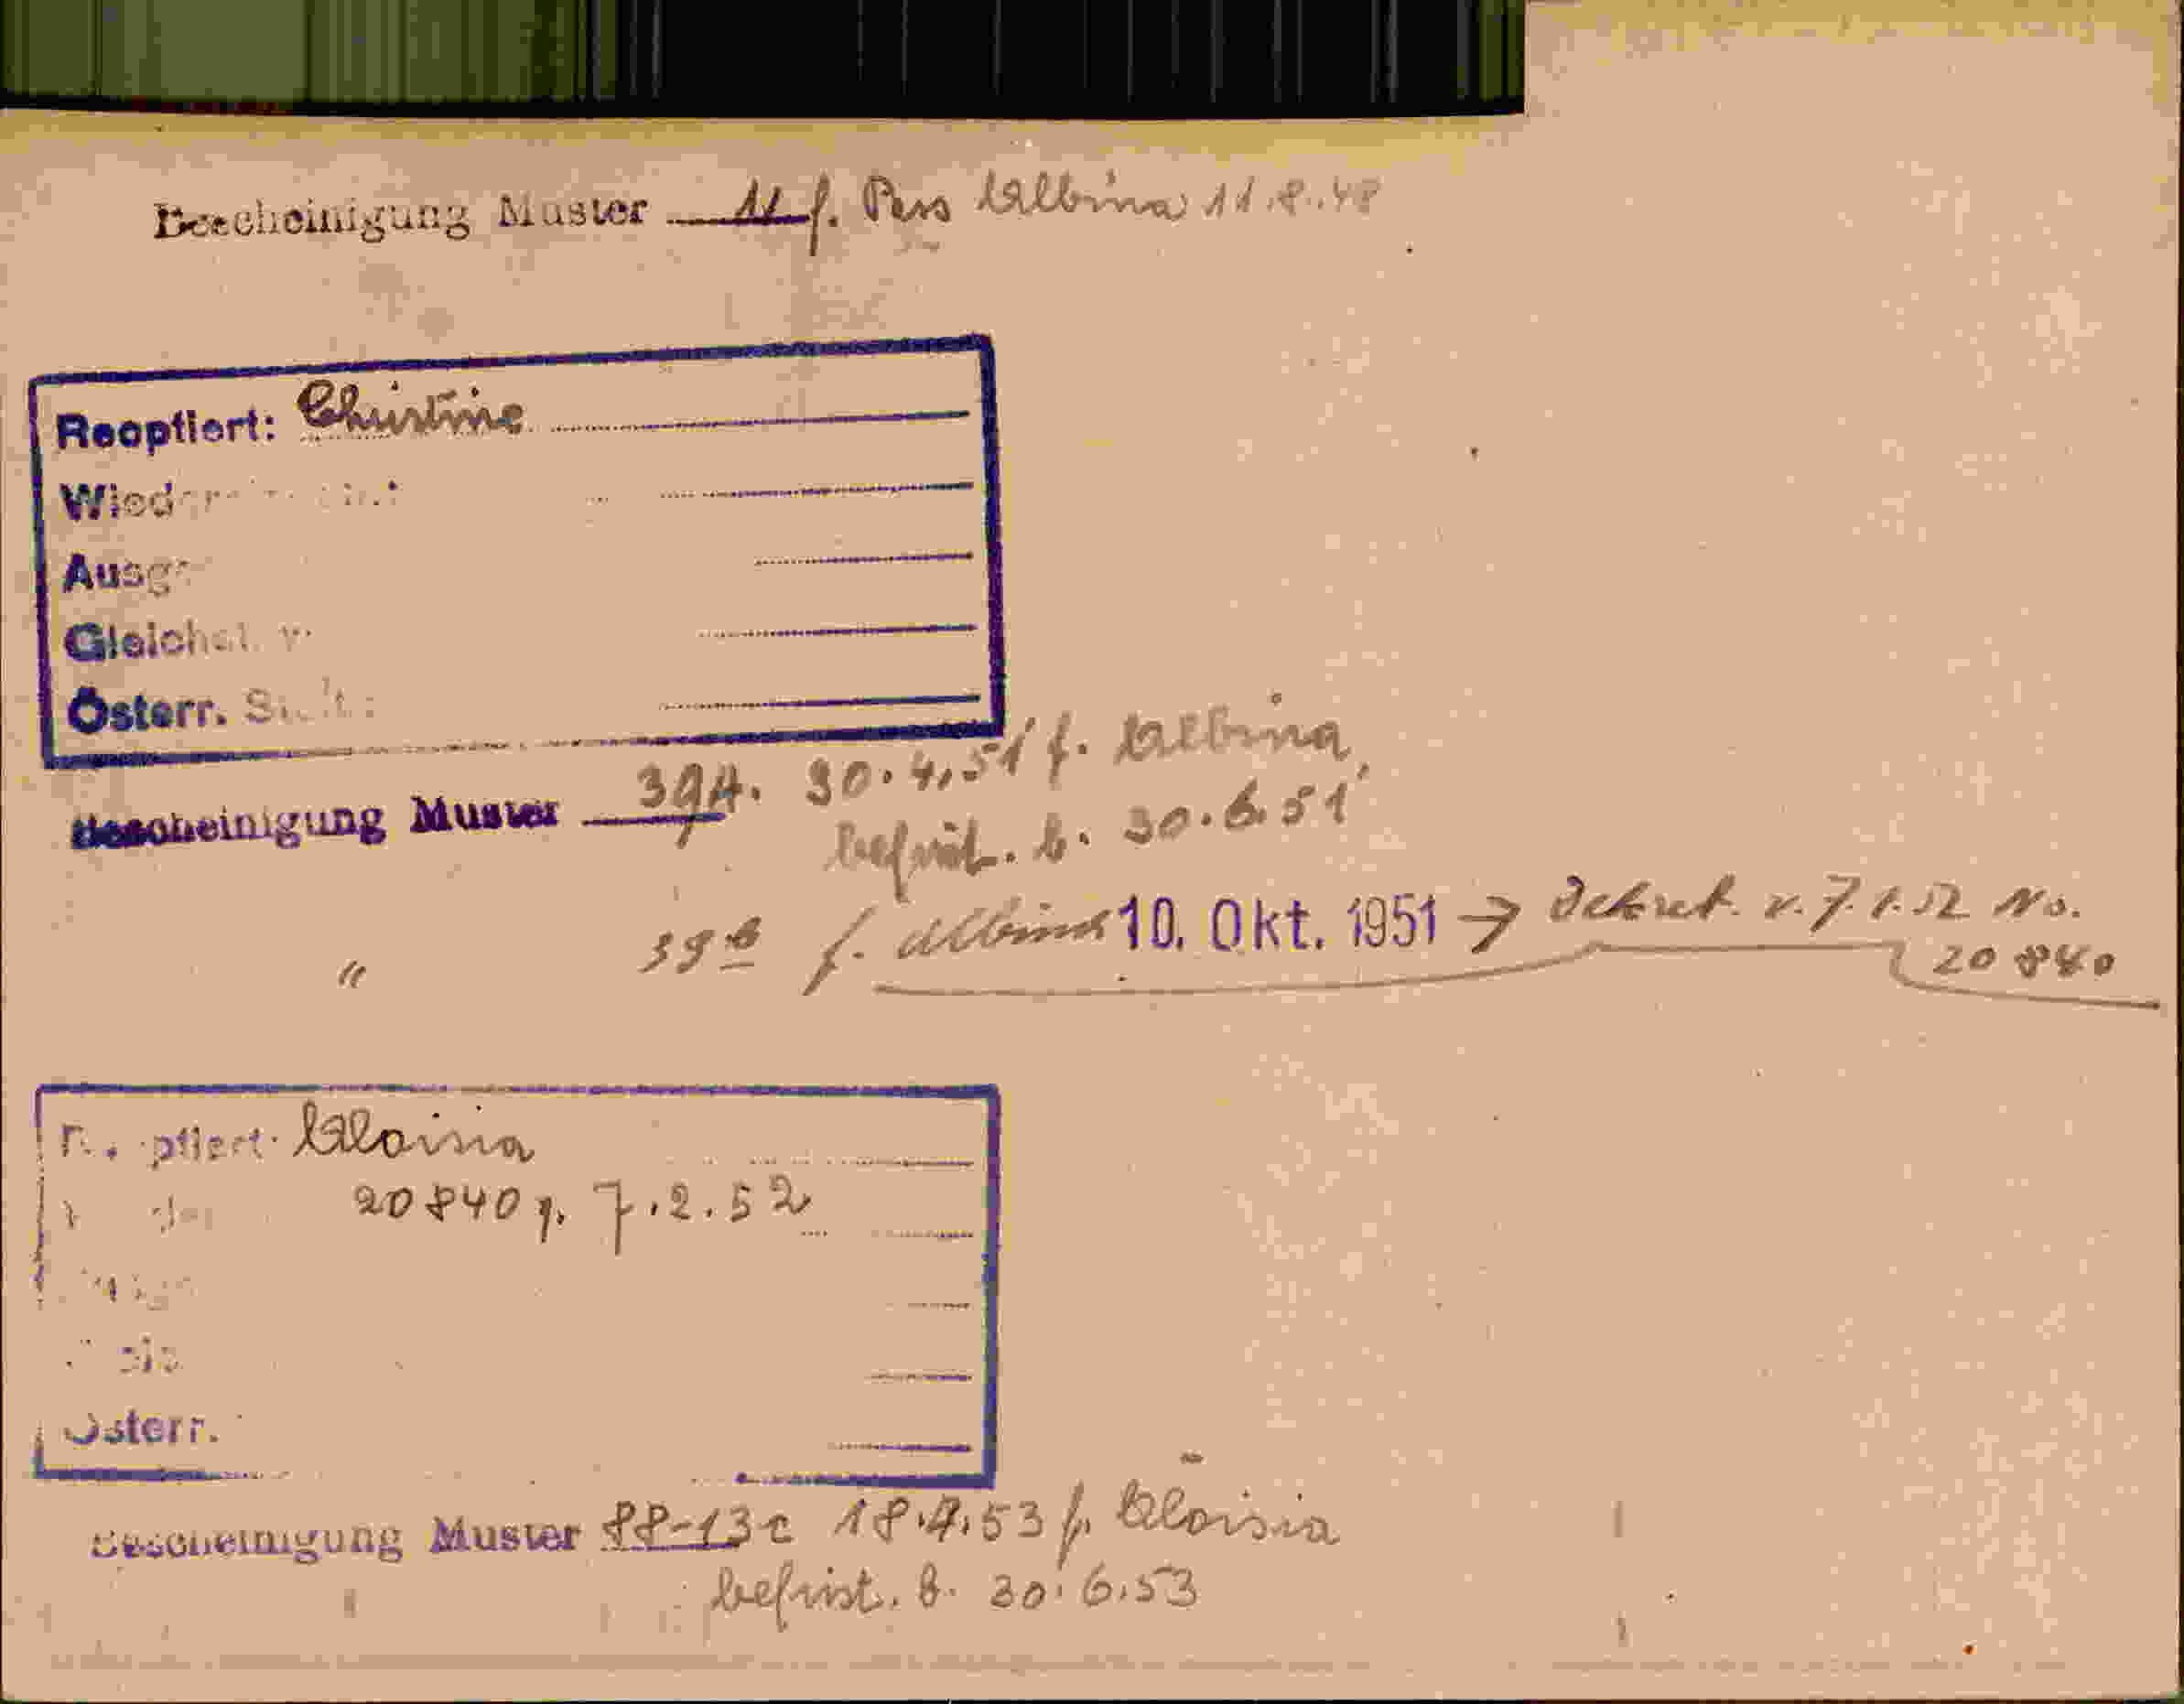 Bescheinigung Muster 11 f. Pass Albina 11.8.48
Reoptiert: Christine
Österr.
Bescheinigung Muster 39A. 30.4.51 f. Albina,
befrist. b. 30.6.51
" 39b f. Albina 10. Okt. 1951 → Dekret v. 7.1.52 No.
20840
Aloisia
20840 v. 7.2.52
Österr.
Bescheinigung Muster 88-13c 18.4.53 f. Aloisia
befrist. b. 30.6.53